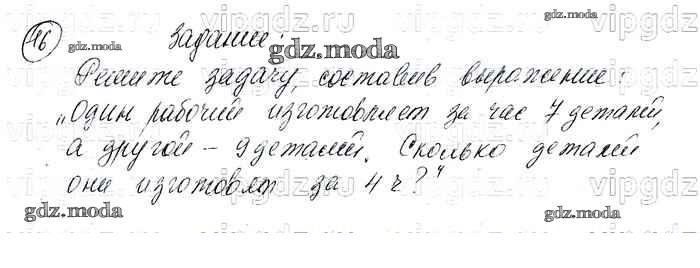 46 Задание:
Решите задачу, составив выражение:
„Один рабочий изготовляет за час 7 деталей,
а другой – 9 деталей. Сколько деталей
они изготовят за 4 ч?"
gdz.moda
gdz.moda
gdz.moda
gdz.moda
gdz.moda
gdz.moda
vipgdz.ru
vipgdz.ru
vipgdz.ru